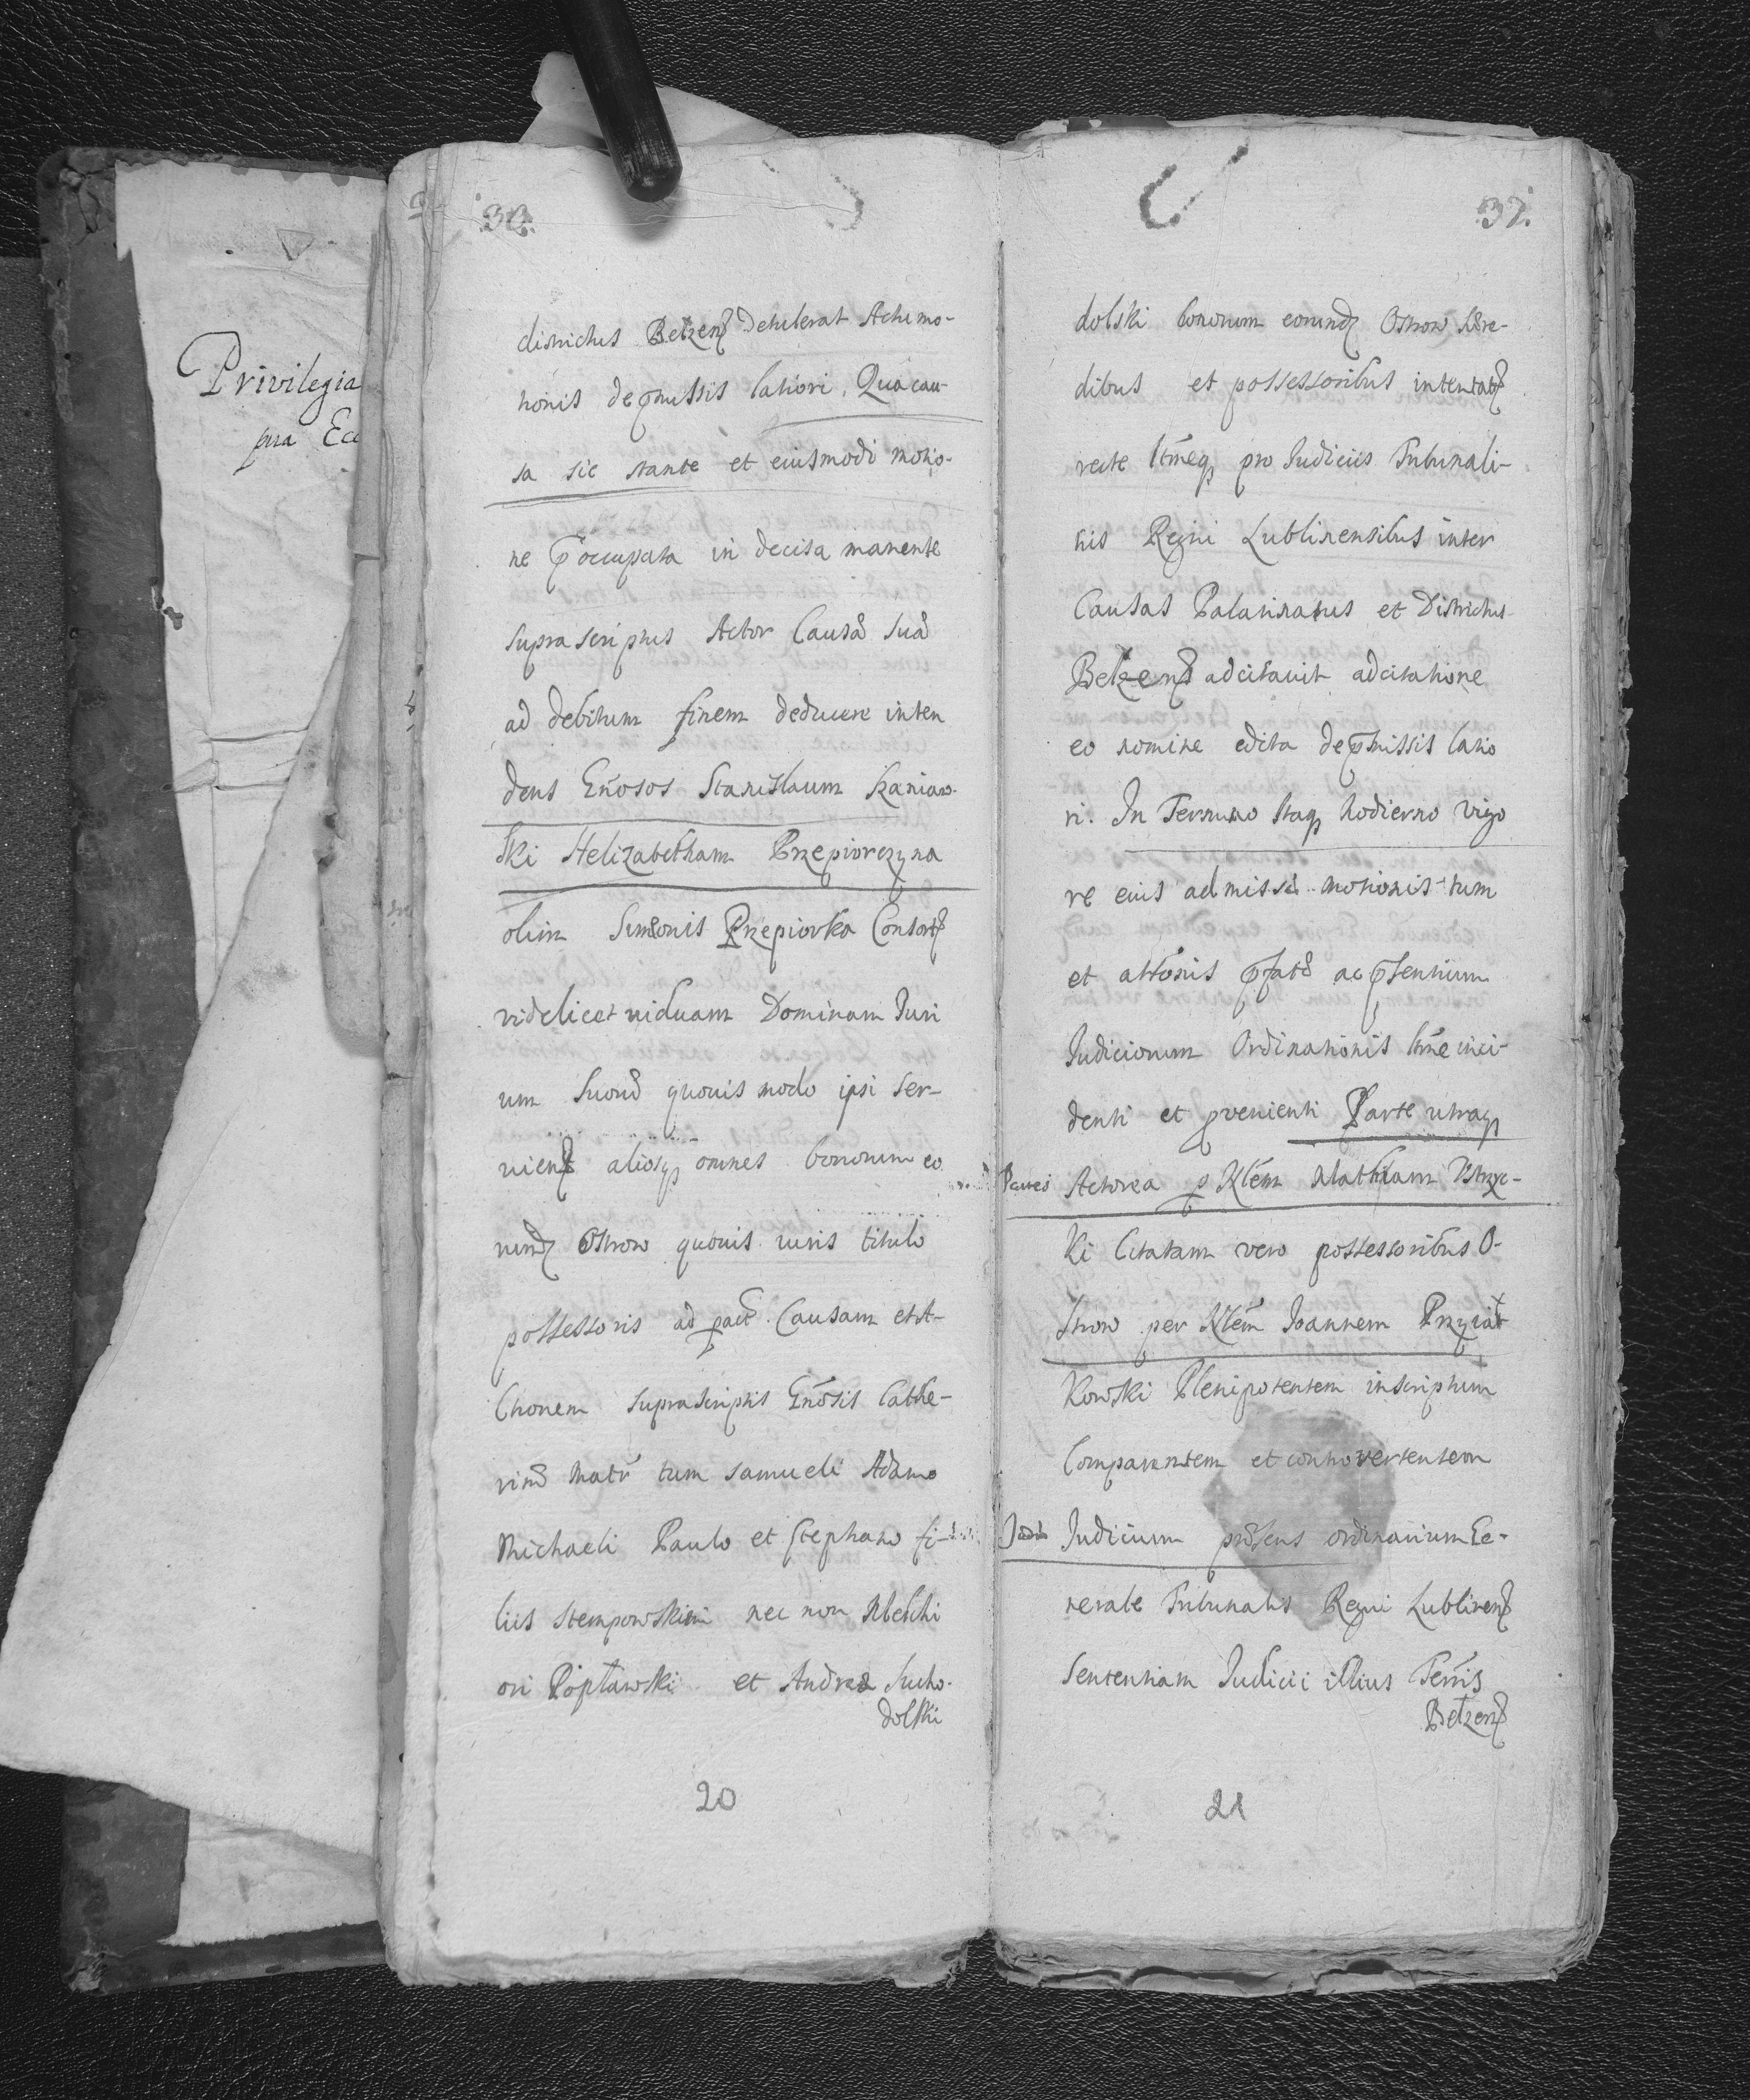 Privilegia
pra Ecc
36.
districtus Belzens detulerat Actu mo-
tionis de pmissis latiori. Qua cau-
sa sic stante et eiusmodi motio-
ne poccupata in decisa manente
suprascriptus Actor Causã suã
ad debitum finem deducere inten
dens Gnosos Stanislaum Kaniaw-
ski Helizabetham Przepiorczyna
olim Simonis Przepiorka Consort
videlicet viduam Dominam Juri
um Suorũ quovis modo ipsi ser-
vient aliosq omnes bonorum eo
rund Ostrow quovis iuris titulo
possessoris ad pact Causam et A-
ctionem suprascriptis Gnosis Cathe-
rinã Matri tum Samueli Adamo
Michaeli Paulo et Stephano fi-
liis Stempowskim nec non Melchi
ori Popławski et Andrea Sucho-
dolski
20
37.
dolski bonorum eorund Ostrow Here-
dibus et possessoribus intentat
recte ltmeq pro Judiciis Tribunali-
tis Regni Lublinensibus inter
Causas Palatinatus et Districtus
Belzens adcitavit adcitatione
eo nomine edita de pmissis latio
ri. In Termino itaq hodierno vigo
re eius admissi motionis tum
et attonis pfatã ac psentium
Judiciorum Ordinationis ltme inci-
denti et pvenienti Parte utraq
Partes Actorea p Nlem Mathiam Ustrzc-
ki Citatam vero possessoribus O-
strow per Nlem Joannem Przyiat
kowski Plenipotentem inscriptum
Comparentem et controvertentem
Judm Judicium prẽsens ordinarium Ge-
nerale Tribunalis Regni Lublinens
Sententiam Judicii illius Terris
Belzens
21